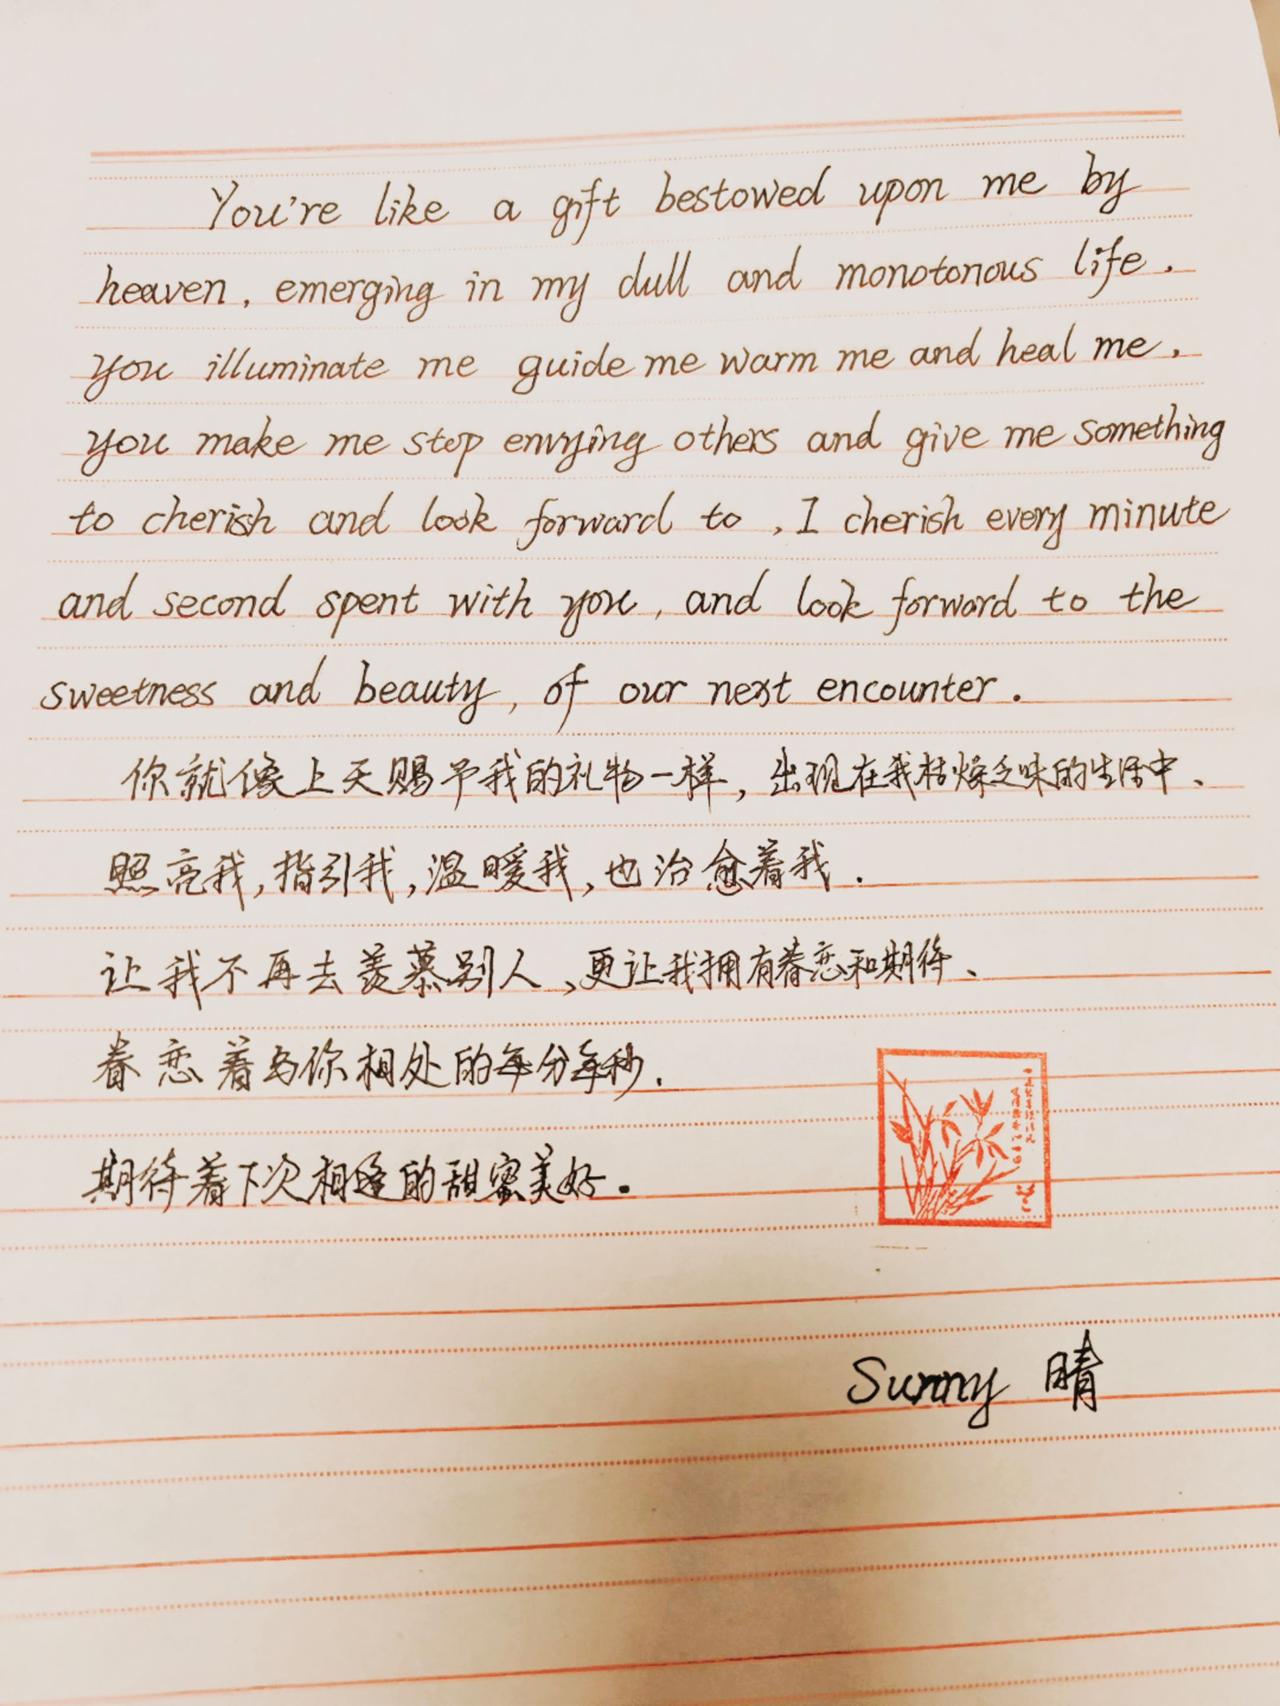 You're like a gift bestowed upon me by
heaven, emerging in my dull and monotonous life.
you illuminate me guide me warm me and heal me,
you make me stop envying others and give me something
to cherish and look forward to, I cherish every minute
and second spent with you, and look forward to the
sweetness and beauty, of our next encounter.
你就像上天赐予我的礼物一样，出现在我枯燥乏味的生活中、
照亮我，指引我，温暖我，也治愈着我.
让我不再去羡慕别人、更让我拥有眷恋和期待、
眷恋着与你相处的每分每秒.
期待着下次相逢的甜蜜美好.
Sunny 晴